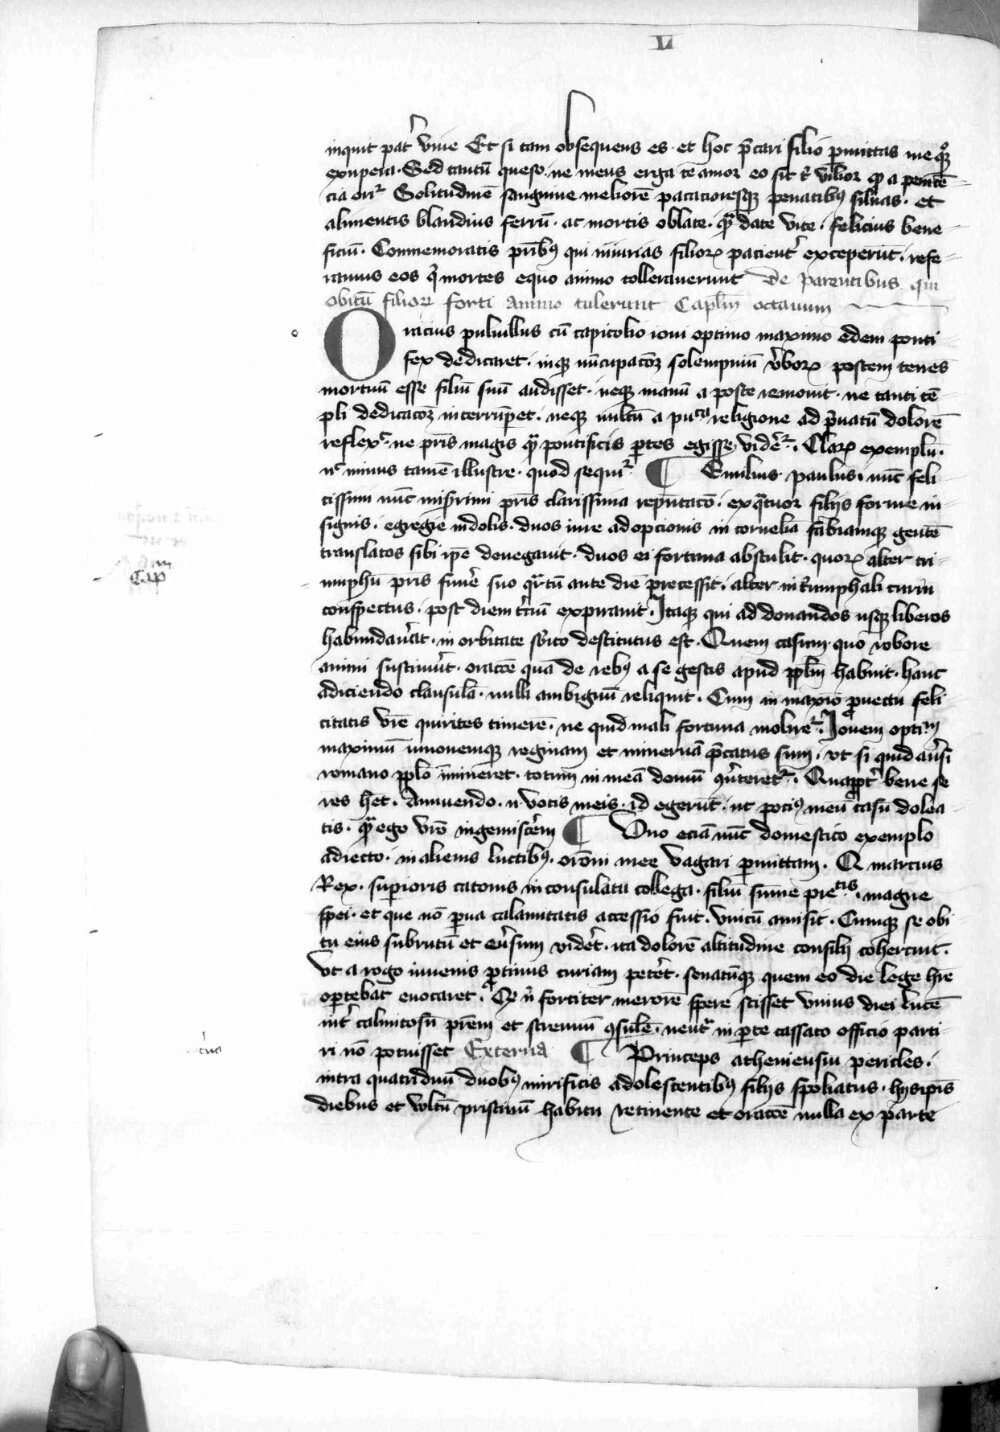 L
inquit pat̾ viue Et si tam obsequens es · et hoc p̄cari filio ꝑmittas me qͦꝫ
exupera · Sed tantū queso · ne meus erga te amor eo sit t̾ vilior ꝙ a penitē
cia orit̾ Solitudinē sanguine meliorē pacacioresqꝫ penatibꝰ siluas · et
alimentis blandius ferrū · ac mortis oblate · ꝙ̄ date vite · felicius bene
ficiū · Commemoratis p̄ribꝰ qui iniurias filioꝝ pacient̾ exceperūt · refe
ramus eos qͥ mortes equo animo tollerauerunt De Parentibus qui
obitū filioꝝ forti Animo tulerunt Capl̄m octauum
Oracius puluillus cū capitolio ioui optimo maximo edem ponti
fex dedicaret · inqꝫ nūcupacōe solempniū v̾boꝝ postem tenēs
mortuū esse filiū suū audisset · neqꝫ manū a poste remouit · ne tanti tē
pli dedicacōꝫ interrūpet · neqꝫ vultū a puᶜᵃ religione ad p̄uatū dolorē
reflexᵗ · ne p̄ris magis ꝙ̄ pontificis ꝑtes egisse vider̾ · Claꝝ exemplū ·
nᶜ minus tamē illustre · quod sequit̾ ¶ Emilius paulus · nūc feli
cissimi nūc mis̾rimi p̄ris clarissima rep̄ntacō · ex qͣtuor filijs forme in
signis · egregie indolis · duos iure adopcionis in cornelia fabiamqꝫ gentē
translatos sibi ip̄e denegauit · duos ei fortuna abstulit · quoꝝ alter tri
Capᵐ
umphū p̄ris fun̾e suo qͣrtū ante diē precessit · alter in t̾umphali curru
conspectus · post diem t̾ciū expirauit · Itaqꝫ qui ad donandos usqꝫ liberos
habundau̾at · in orbitate sb̾ito destitutus est · Quem casum quo robore
animi sustinu̾it · oracōe quā de rebꝰ a se gestis apud ppl̄m habuit · hanc
adiciendo clausulā · nulli ambiguū reliquit · Cum in maxīo ꝓuectu feli
citatis v̄re quirites timerē · ne quid mali fortuna moliret̾ · Iouem optiᵐ
maximū iunonemqꝫ reginam et mineruā p̄catus sum · vt si quid adu̾si
romano pplo īmineret · totum in meā domū ꝯu̾teret̾ · Quaꝓpt̾ bene se
res h̄et · Annuendo · n̄ votis meis · id egerūt · ut pociꝰ meū casū dolea
tis · ꝙ̄ ego v̄ro ingemiscerē ¶ Vno eciā nūc domestico exemplo
adiecto · in alienis luctibꝰ · orōni mee vagari ꝑmittam · Q marcius
Rex · suꝑioris catonis in consulatu collega · filiū sūme pieᵗⁱˢ · magne
spei · et que nō ꝑua calamitatis accessio fuit · vnicū amisit · Cumqꝫ se obi
tu eius subrutū et eu̾sum videret · ita dolorē altitudine consilij cohercuit ·
vt a rogo iuuenis ꝓtinus curiam peteret · senatūqꝫ quem eo die lege h̄re
oꝑtebat euocaret · Qͦ n̄ fortiter merorē sꝑere scisset vnius diei lucē
int̾ calamitosū p̄rem et strenuū ꝯsulē · neut̾ in ꝑte cassato officio parti
ri nō potuisset Externa ¶ Princeps atheniensiū pericles ·
intra quatriduū duobꝰ mirificis adolescentibꝰ filijs spoliatus · hijs ip̄is
diebus et vultū pristinū habitu retinente et oracōe nulla ex parte